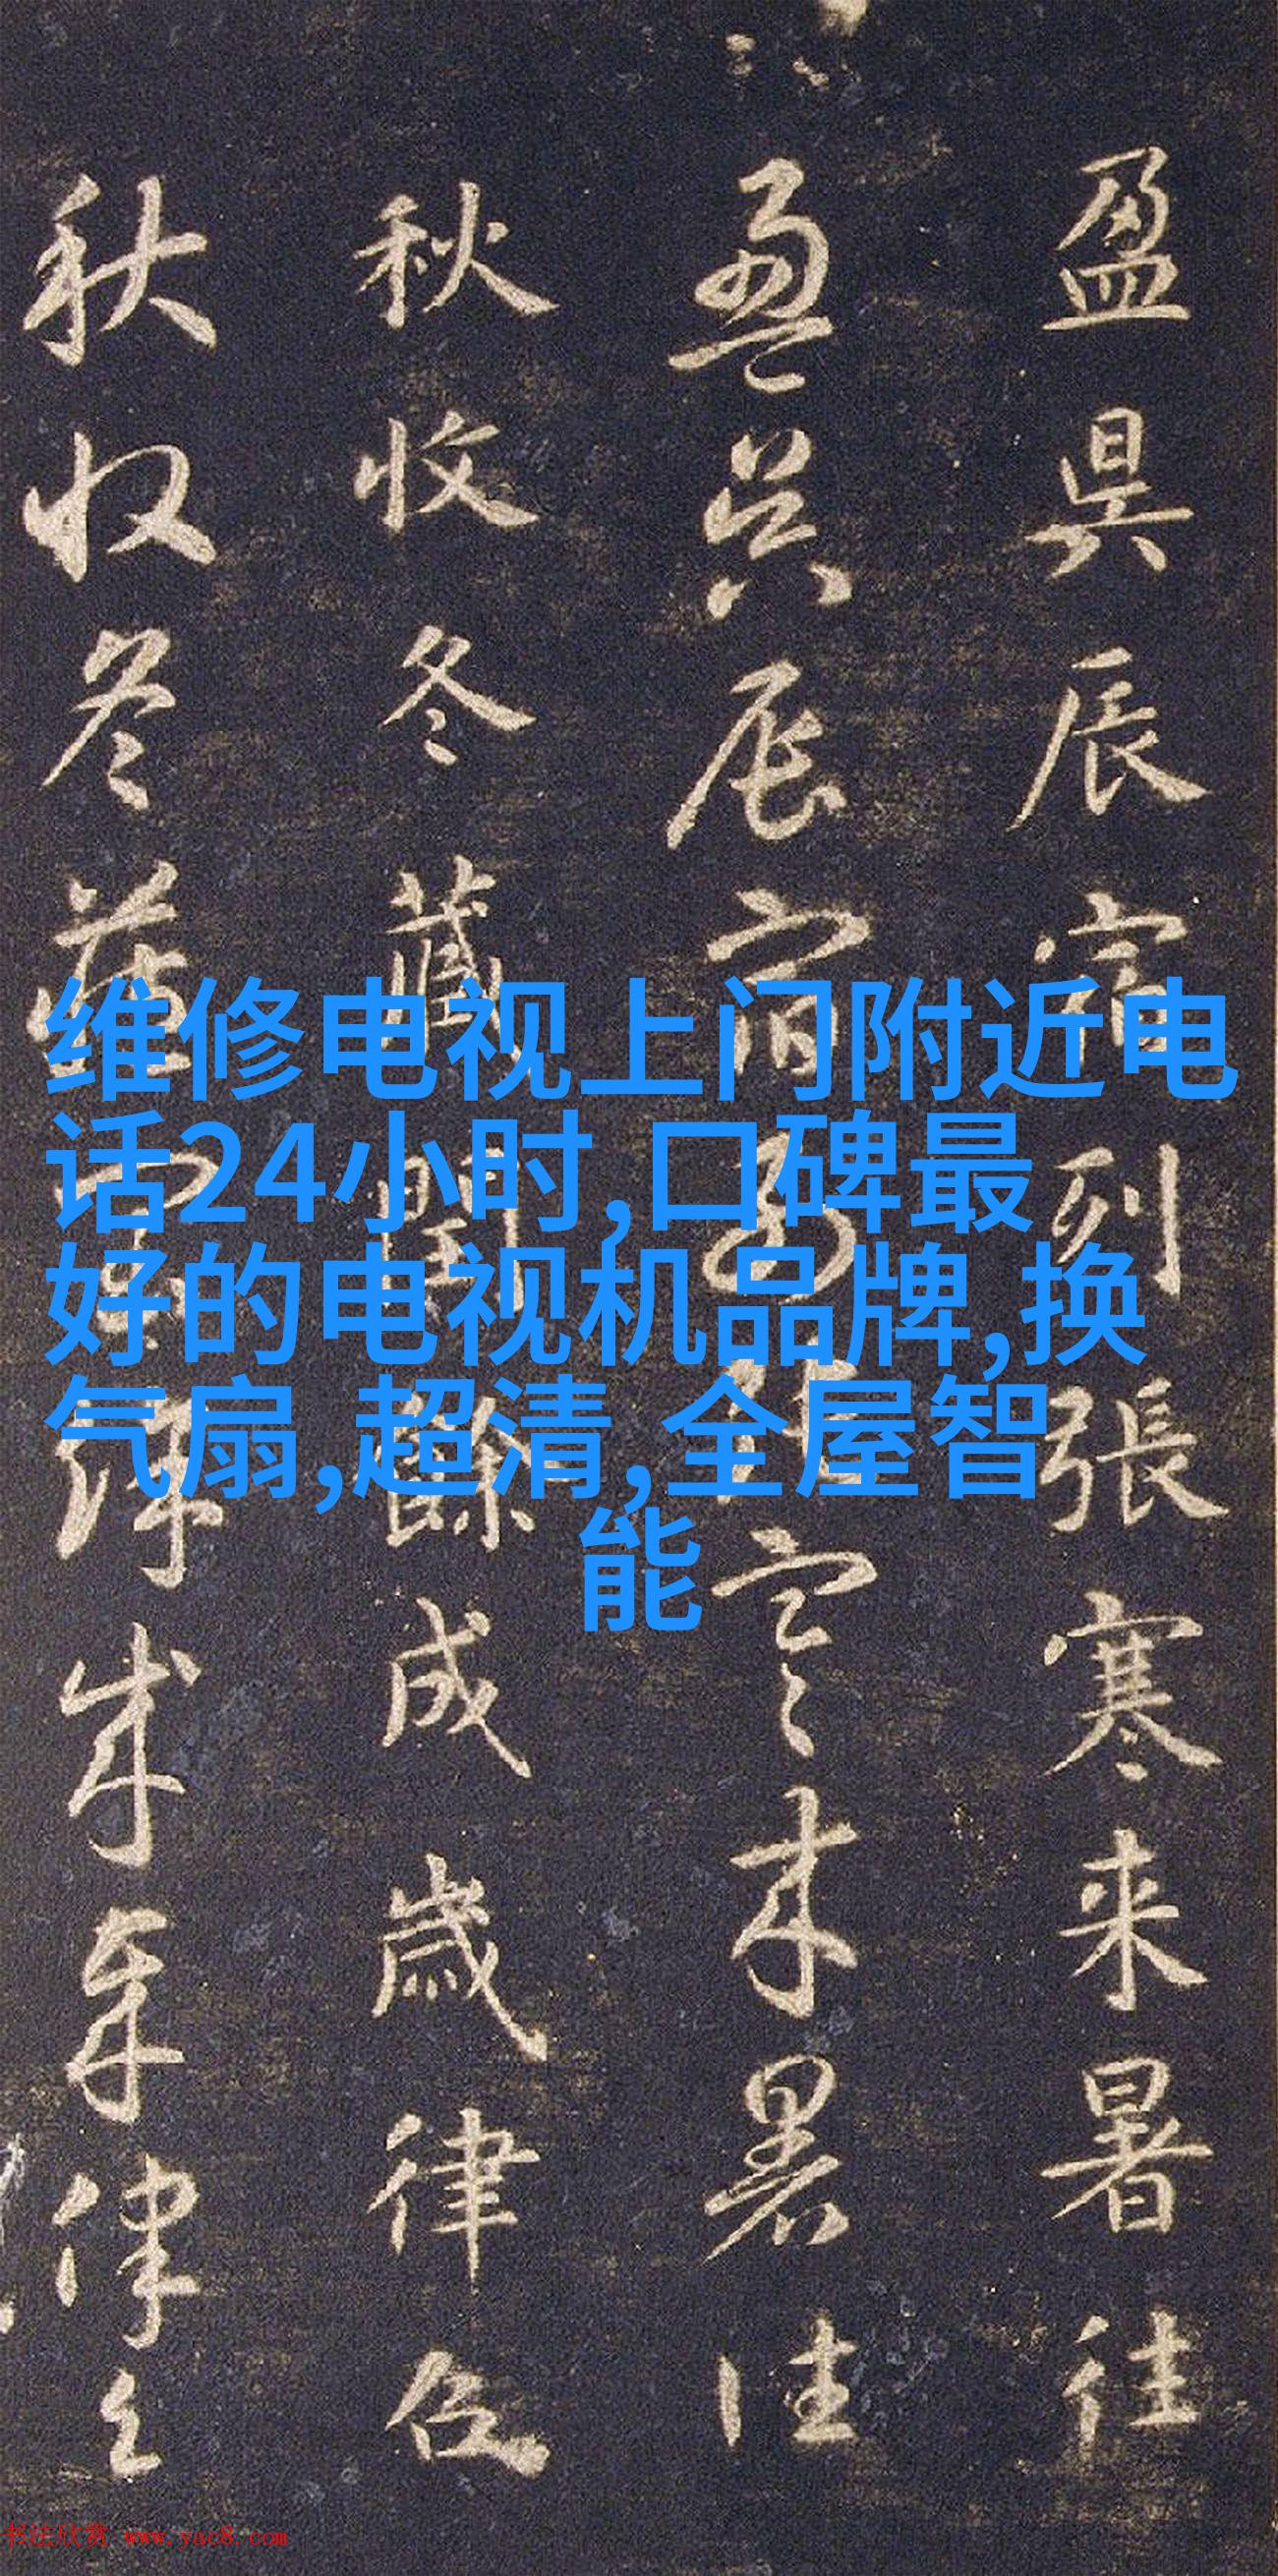 盈昃辰宿列張寒来暑往
盈昃辰宿列張寒来暑往
秋收冬藏閏餘成歲律呂
秋收冬藏閏餘成歲律呂
维修电视上门附近电
话24小时,口碑最
好的电视机品牌,换
气扇,超清,全屋智
能
书法欣赏 www.yac8.com